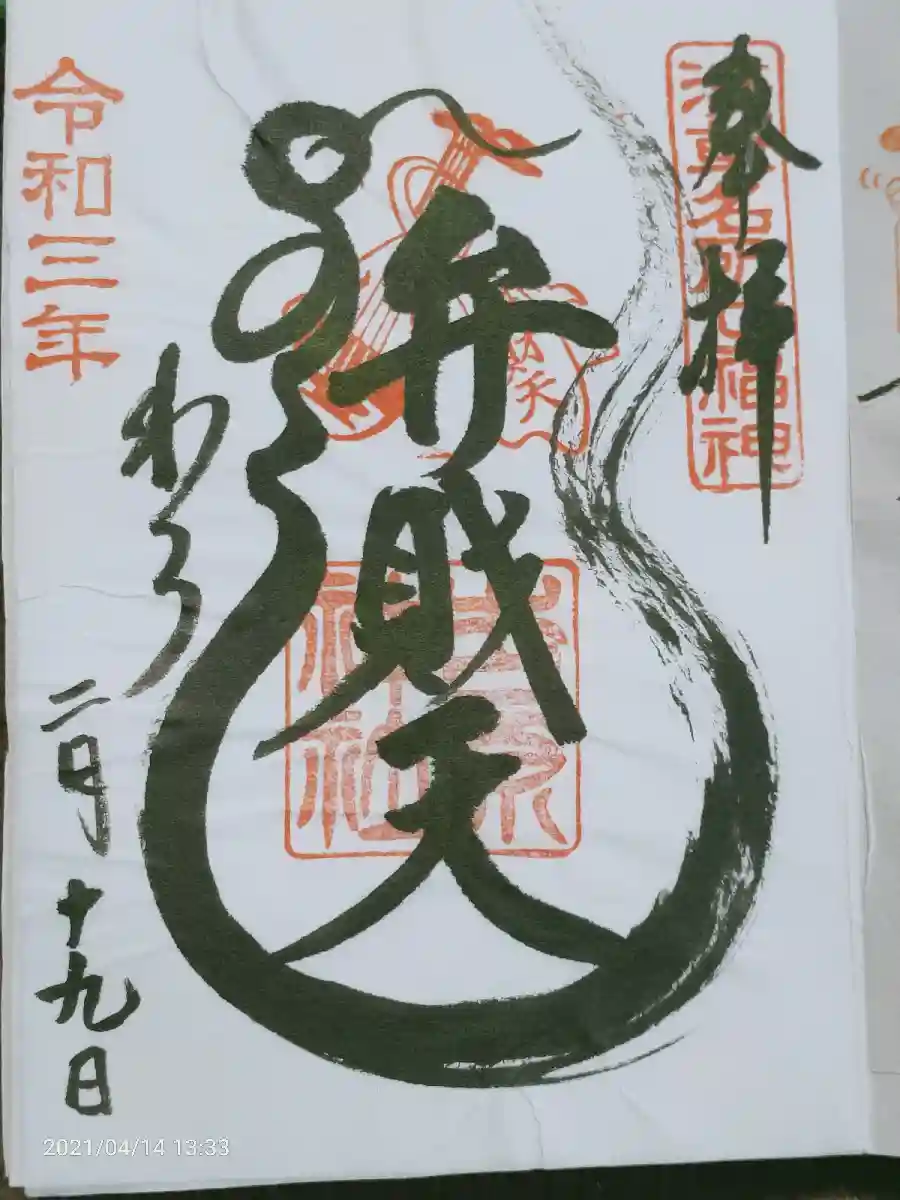 奉拝
浅草名所七福神
弁財天
吉原神社
令和三年
二月十九日
2021/04/14 13:33